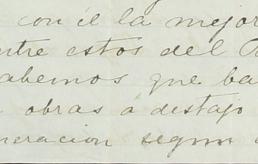 con él la mejor
entre estos del
abemos que ba
obras a destajo
neracion segun